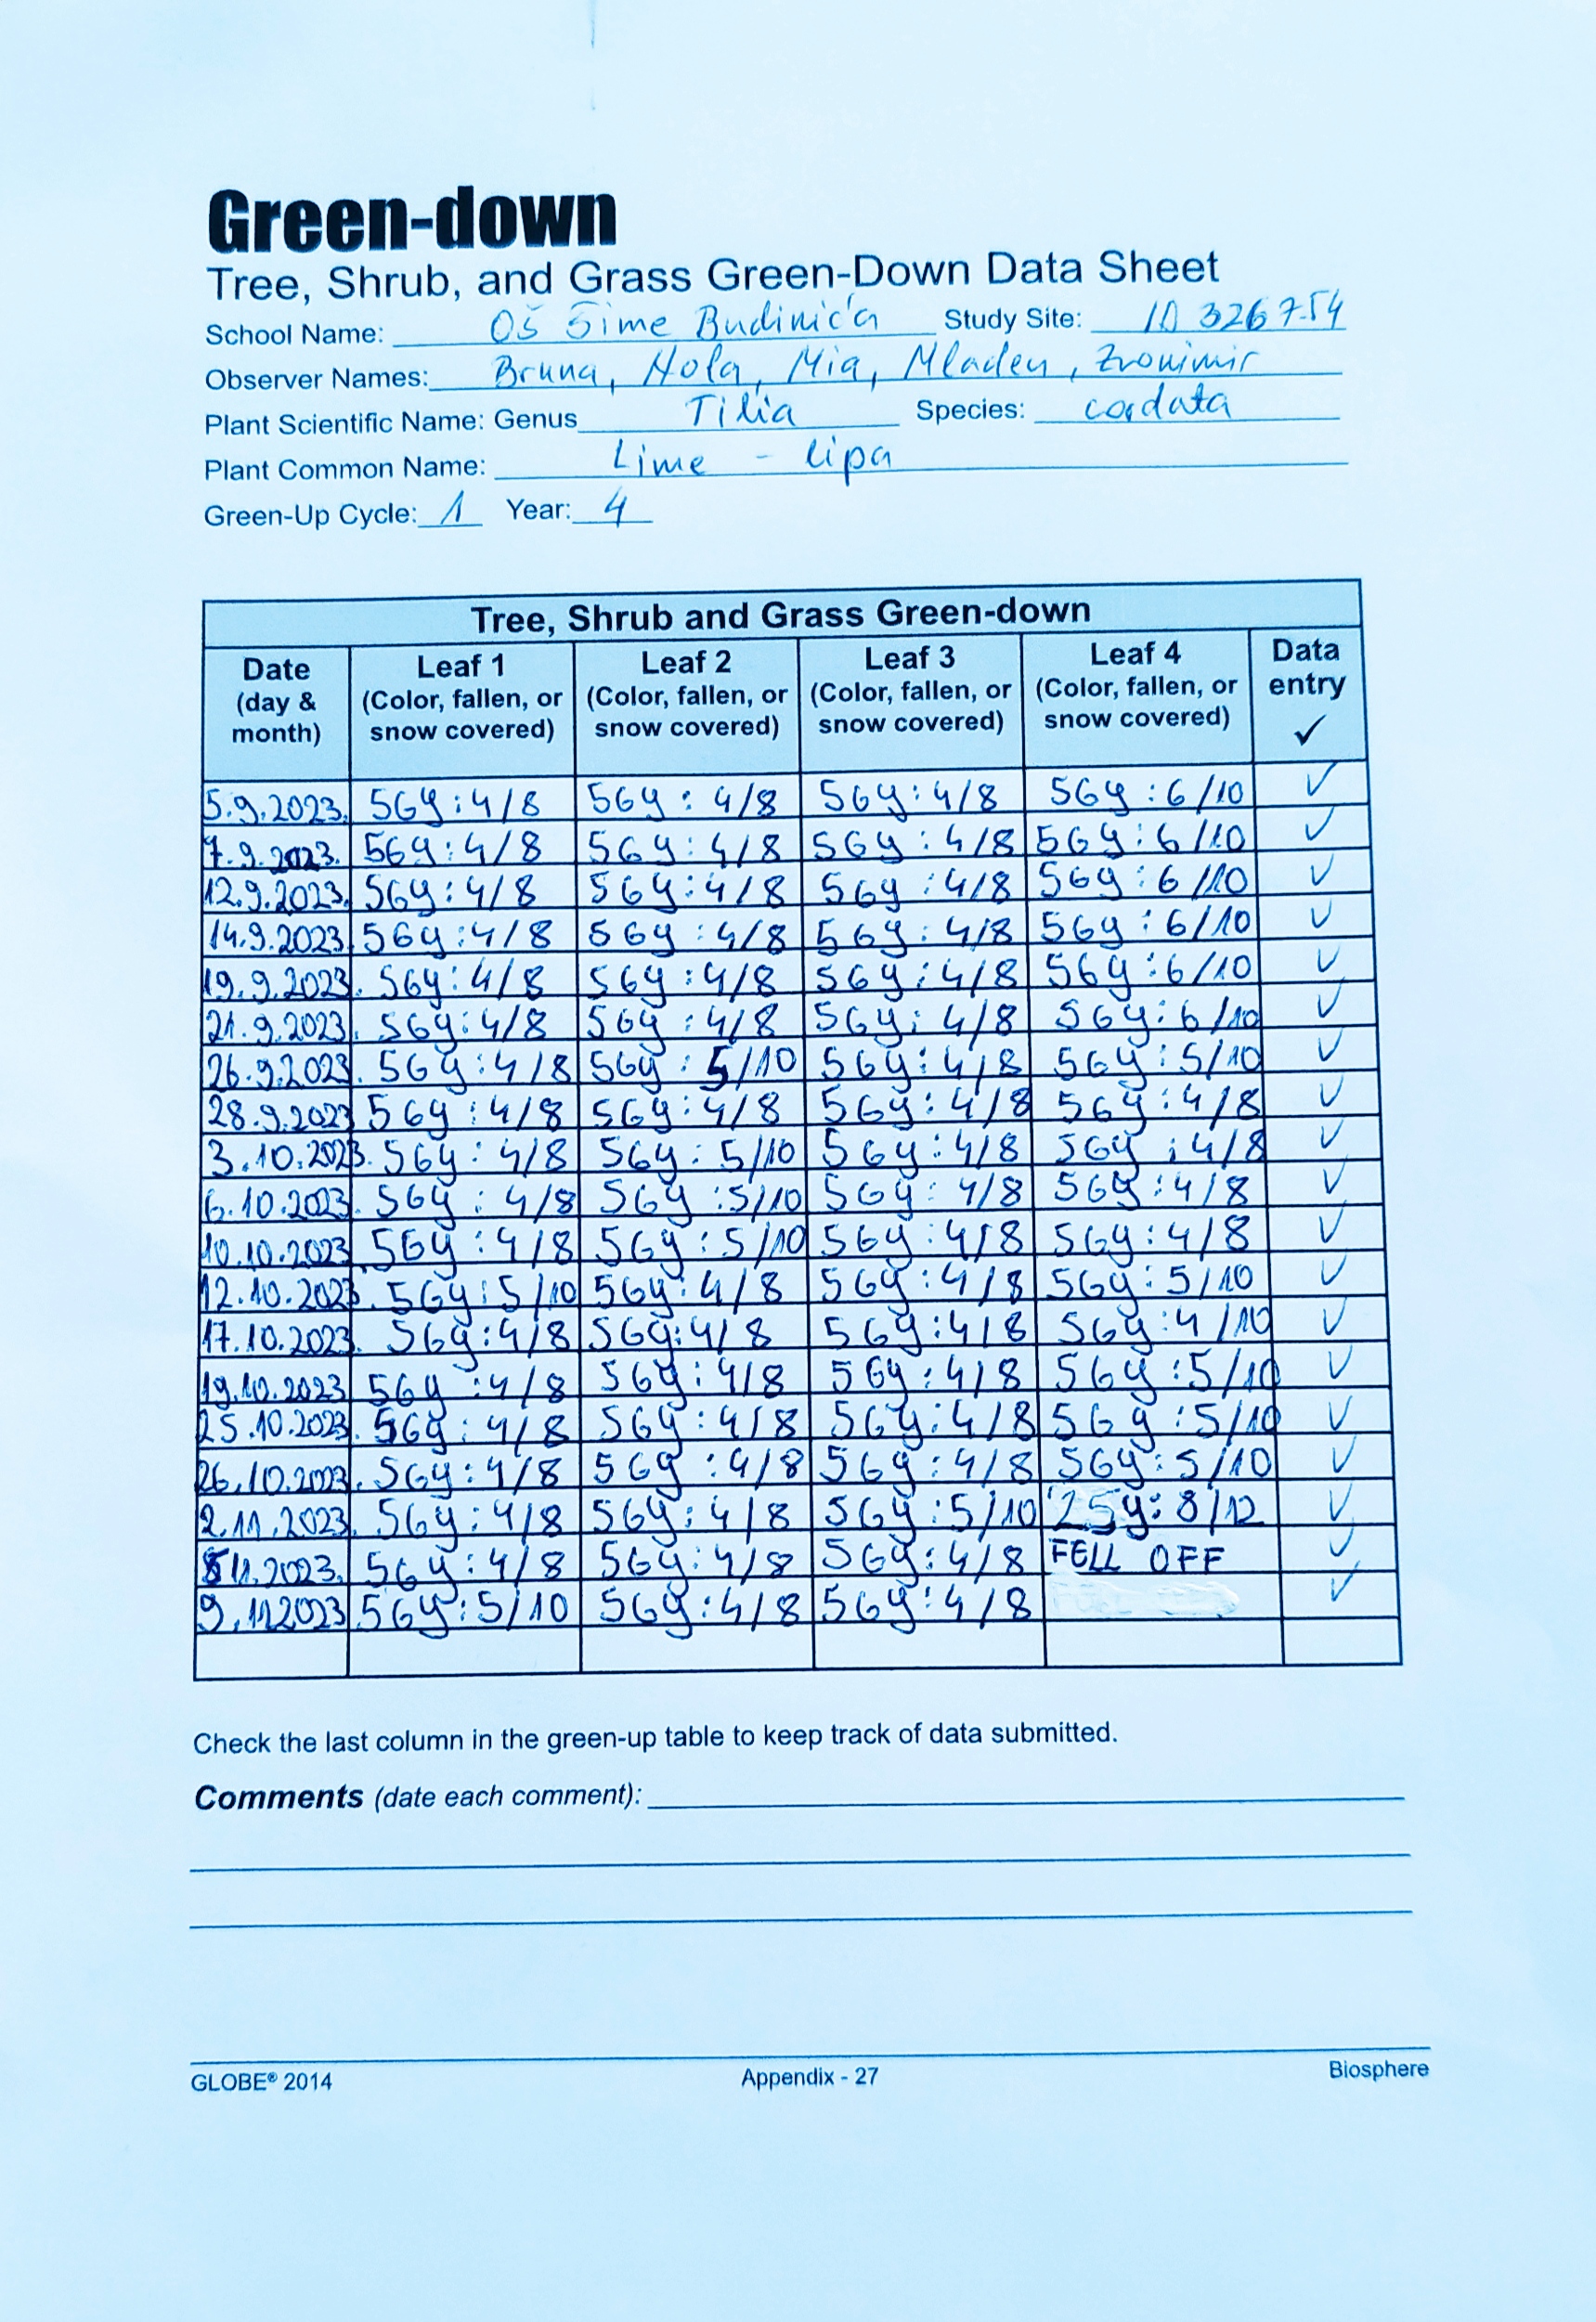 Green-down
Tree, Shrub, and Grass Green-Down Data Sheet
School Name: OŠ Šime Budinića Study Site: ID 326754
Observer Names: Bruna, Nola, Mia, Mladen, Zvonimir
Plant Scientific Name: Genus Tilia Species: cordata
Plant Common Name: Lime - lipa
Green-Up Cycle: 1 Year: 4
Tree, Shrub and Grass Green-down
Date (day & month) Leaf 1 (Color, fallen, or snow covered) Leaf 2 (Color, fallen, or snow covered) Leaf 3 (Color, fallen, or snow covered) Leaf 4 (Color, fallen, or snow covered) Data entry ✓
5.9.2023. 5Gy:4/8 5Gy:4/8 5Gy:4/8 5Gy:6/10 ✓
7.9.2023. 5Gy:4/8 5Gy:4/8 5Gy:4/8 5Gy:6/10 ✓
12.9.2023. 5Gy:4/8 5Gy:4/8 5Gy:4/8 5Gy:6/10 ✓
14.9.2023. 5Gy:4/8 5Gy:4/8 5Gy:4/8 5Gy:6/10 ✓
19.9.2023. 5Gy:4/8 5Gy:4/8 5Gy:4/8 5Gy:6/10 ✓
21.9.2023. 5Gy:4/8 5Gy:4/8 5Gy:4/8 5Gy:6/10 ✓
26.9.2023. 5Gy:4/8 5Gy:5/10 5Gy:4/8 5Gy:5/10 ✓
28.9.2023 5Gy:4/8 5Gy:4/8 5Gy:4/8 5Gy:4/8 ✓
3.10.2023. 5Gy:4/8 5Gy:5/10 5Gy:4/8 5Gy:4/8 ✓
6.10.2023. 5Gy:4/8 5Gy:5/10 5Gy:4/8 5Gy:4/8 ✓
10.10.2023. 5Gy:4/8 5Gy:5/10 5Gy:4/8 5Gy:4/8 ✓
12.10.2023. 5Gy:5/10 5Gy:4/8 5Gy:4/8 5Gy:5/10 ✓
17.10.2023. 5Gy:4/8 5Gy:4/8 5Gy:4/8 5Gy:4/10 ✓
19.10.2023 5Gy:4/8 5Gy:4/8 5Gy:4/8 5Gy:5/10 ✓
25.10.2023. 5Gy:4/8 5Gy:4/8 5Gy:4/8 5Gy:5/10 ✓
26.10.2023. 5Gy:4/8 5Gy:4/8 5Gy:4/8 5Gy:5/10 ✓
2.11.2023. 5Gy:4/8 5Gy:4/8 5Gy:5/10 25y:8/12 ✓
8.11.2023. 5Gy:4/8 5Gy:4/8 5Gy:4/8 FELL OFF ✓
9.11.2023 5Gy:5/10 5Gy:4/8 5Gy:4/8 ✓
Check the last column in the green-up table to keep track of data submitted.
Comments (date each comment):
GLOBE® 2014 Appendix - 27 Biosphere